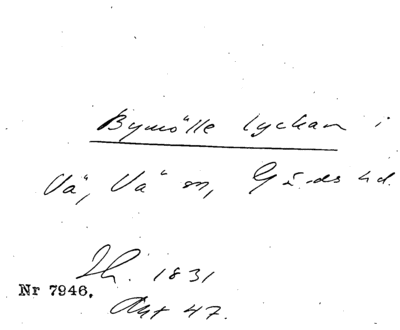 Bymölle lyckan i
Vä, Vä sn, Gärds hd.
Sk. 1831
Nr 7946.
Akt 47.